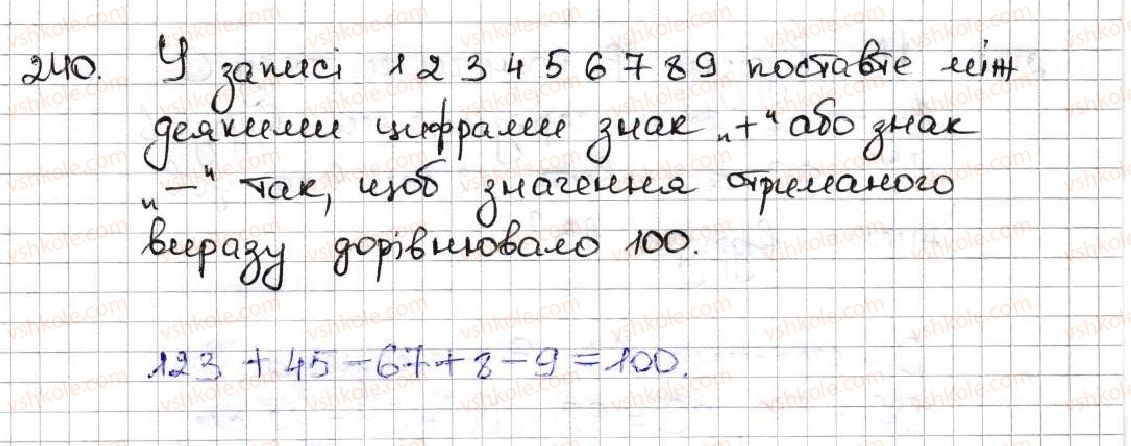 240. У записі 1 2 3 4 5 6 7 8 9 поставте між
деякими цифрами знак „+“ або знак
„–“ так, щоб значення отриманого
виразу дорівнювало 100.
123 + 45 – 67 + 8 – 9 = 100.